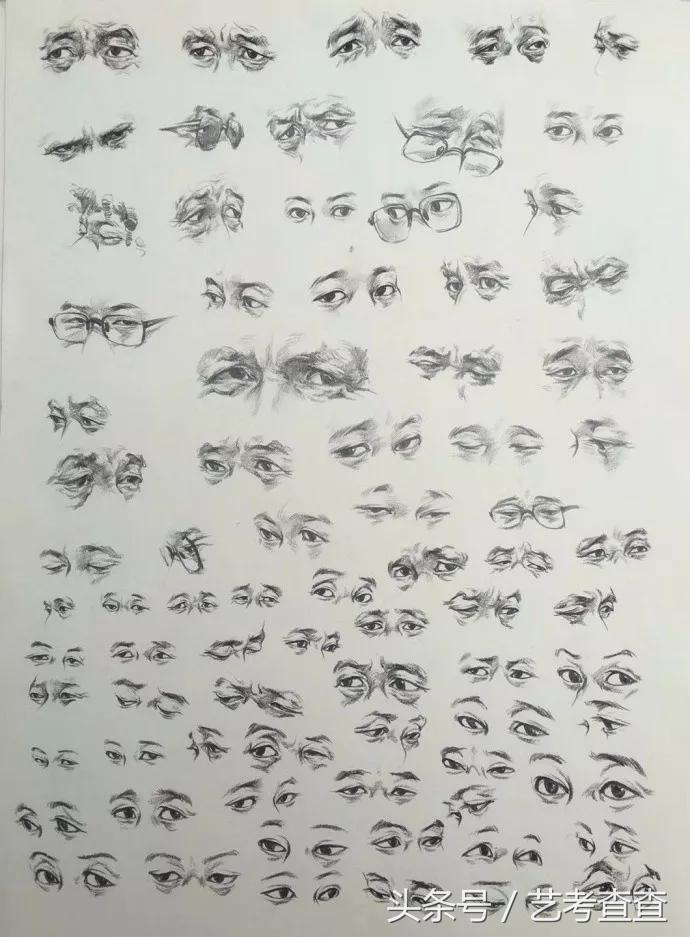 头条号 / 艺考查查